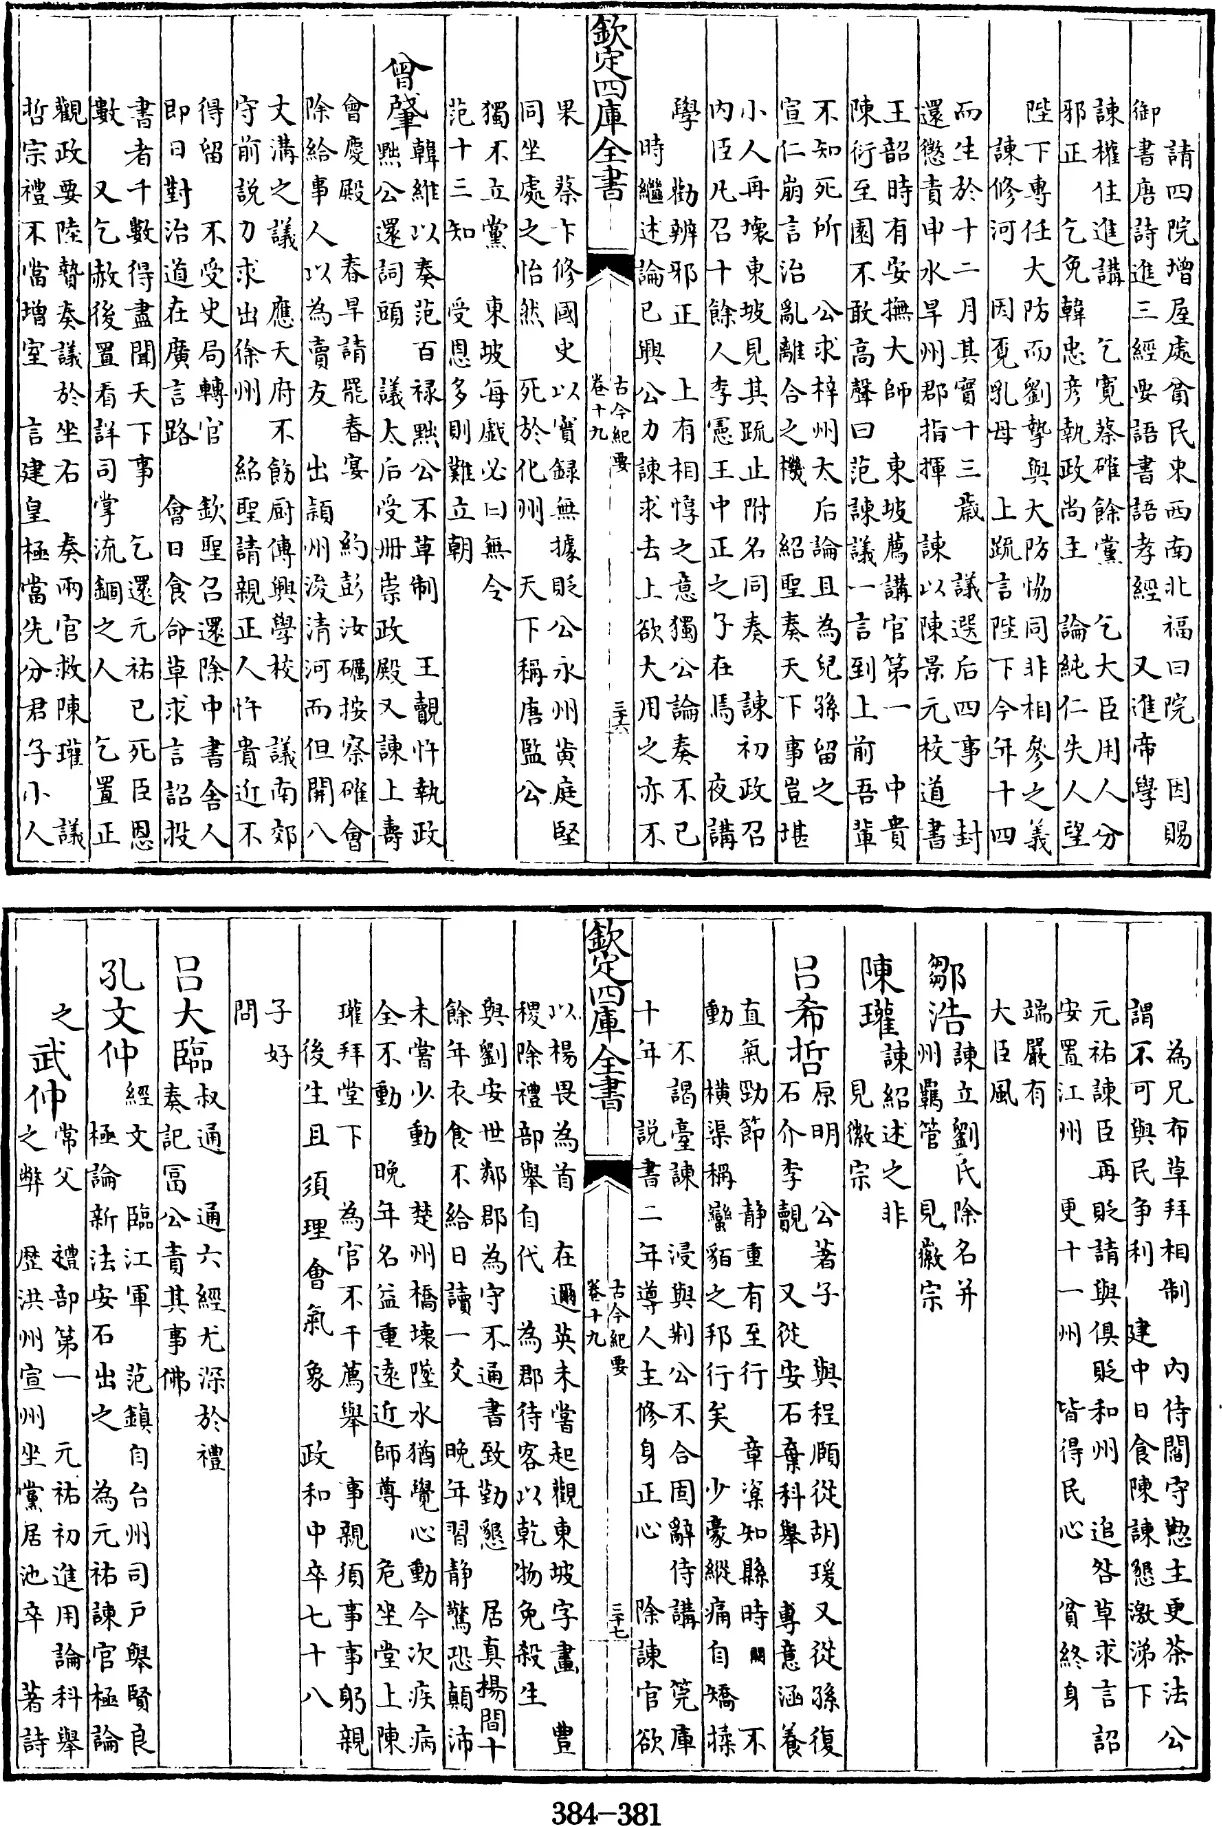 請四院增屋處貧民東西南北福曰院　因賜
御書唐詩進三經要語書語孝經　又進帝學
諫權住進講　乞寛蔡確餘黨　乞大臣用人分
邪正　乞免韓忠彦執政尚主　論純仁失人望
陛下專任大防而劉摯與大防協同非相參之義
諫修河　因覔乳母　上疏言陛下今年十四
而生於十二月其實十三歲　議選后四事　封
還懲責申水旱州郡指揮　諫以陳景元校道書
王韶時有安撫大師　東坡薦講官第一　中貴
陳衍至園不敢高聲曰范諫議一言到上前吾輩
不知死所　公求梓州太后論且為兒孫留之
宣仁崩言治亂離合之機　紹聖奏天下事豈堪
小人再壞東坡見其疏止附名同奏　諫初政召
内臣凡召十餘人李憲王中正之子在焉　夜講
學　勸辨邪正　上有相惇之意獨公論奏不已
時繼述論已興公力諫求去上欲大用之亦不
欽定四庫全書
古今紀要
卷十九
三十六
果　蔡卞修國史以實録無據貶公永州黄庭堅
同坐處之怡然　死於化州　天下稱唐監公
獨不立黨　東坡每戲必曰無令
范十三知　受恩多則難立朝
曾肇
韓維以奏范百禄黜公不草制　王覿忤執政
黜公還詞頭　議太后受册崇政殿又諫上壽
會慶殿　春旱請罷春宴　約彭汝礪按察確會
除給事人以為賣友　出潁州浚清河而但開八
丈溝之議　應天府不飭厨傳興學校　議南郊
守前説力求出徐州　紹聖請親正人忤貴近不
得留　不受史局轉官　欽聖召還除中書舍人
即日對治道在廣言路　會日食命草求言詔投
書者千數得盡聞天下事　乞還元祐已死臣恩
數　又乞赦後置看詳司掌流錮之人　乞置正
觀政要陸贄奏議於坐右　奏兩官救陳瓘　議
哲宗禮不當增室　言建皇極當先分君子小人
為兄布草拜相制　内侍閻守懃主更茶法公
謂不可與民争利　建中日食陳諫懇激涕下
元祐諫臣再貶請與俱貶和州　追咎草求言詔
安置江州　更十一州　皆得民心　貧終身
端嚴有
大臣風
鄒浩
諫立劉氏除名并
州羈管　見徽宗
陳瓘
諫紹述之非
見徽宗
吕希哲
原明　公著子　與程頤從胡瑗又從孫復
石介李覯　又從安石棄科舉　專意涵養
直氣勁節　静重有至行　章楶知縣時　不
動　横渠稱蠻貊之邦行矣　少豪縱痛自矯揉
不謁臺諫　浸與荆公不合固辭侍講　筦庫
十年　説書二年導人主修身正心　除諫官欲
欽定四庫全書
古今紀要
卷十九
三十七
以楊畏為首　在邇英未嘗起觀東坡字畫　豐
稷除禮部舉自代　為郡待客以乾物免殺生
與劉安世鄰郡為守不通書致勤懇　居真揚間十
餘年衣食不給日讀一爻　晚年習静驚恐顛沛
未嘗少動　楚州橋壞墜水猶覺心動今次疾病
全不動　晚年名益重遠近師尊　危坐堂上陳
瓘拜堂下　為官不干薦舉　事親須事事躬親
後生且須理會氣象　政和中卒七十八
子好
問
吕大臨
叔通　通六經尤深於禮
奏記富公責其事佛
孔文仲
經文　臨江軍　范鎮自台州司户舉賢良
極論新法安石出之　為元祐諫官極論
之　武仲
常父　禮部第一　元祐初進用論科舉
之弊　歴洪州宣州坐黨居池卒　著詩
384-381